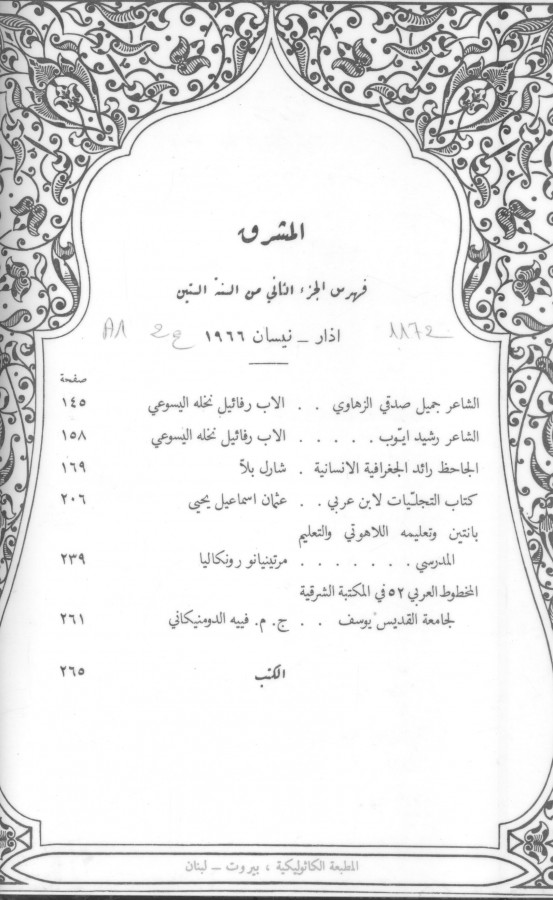 المشرق
فهرس الجزء الثاني من السنة الستين
اذار – نيسان ١٩٦٦
1172
A1
صفحة
الشاعر جميل صدقي الزهاوي . . الاب رفائيل نخله اليسوعي ١٤٥
الشاعر رشيد ايّوب . . . . . الاب رفائيل نخله اليسوعي ١٥٨
الجاحظ رائد الجغرافية الانسانية . شارل بلاّ ١٦٩
كتاب التجلّيات لابن عربي . . عثمان اسماعيل يحيى ٢٠٦
بانتين وتعليمه اللاهوتي والتعليم
المدرسي . . . . . . . مرتينيانو رونكاليا ٢٣٩
المخطوط العربي ٥٢ في المكتبة الشرقية
لجامعة القديس يوسف . . ج. م. فييه الدومنيكاني ٢٦١
الكتب ٢٦٥
المطبعة الكاثوليكية ، بيروت – لبنان